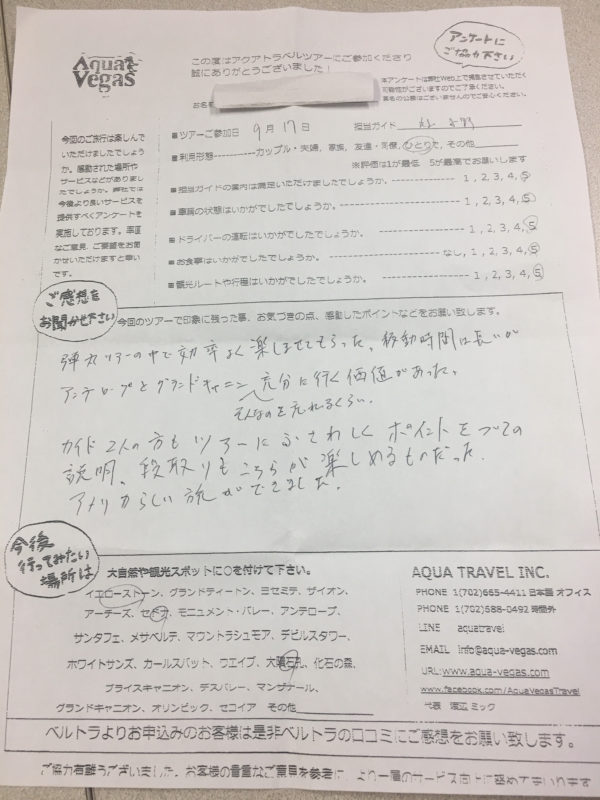 Aqua Vegas
この度はアクアトラベルツアーにご参加くださり
誠にありがとうございました！
アンケートに
ご協力下さい
※アンケートは弊社Web上で掲載させていただく
可能性がございますのでご了承ください。
実名の公開はございませんのでご安心ください。
お名
今回のご旅行は楽しんで
いただけましたでしょう
か。感動された場所や
サービスなどがありまし
たでしょうか。弊社では
今後より良いサービスを
提供すべくアンケートを
実施しております。率直
なご意見、ご要望をお聞
かせいただけますと幸い
です。
■ツアーご参加日 9月17日 担当ガイド
■利用形態------------カップル・夫婦, 家族, 友達・同僚, ひとりた, その他
※評価は1が最低 5が最高でお願いします
■担当ガイドの案内は満足いただけましたでしょうか。 ---------------- 1, 2, 3, 4, 5
■車輌の状態はいかがでしたでしょうか。 ---------------- 1, 2, 3, 4, 5
■ドライバーの運転はいかがでしたでしょうか。 ---------------- 1, 2, 3, 4, 5
■お食事はいかがでしたでしょうか。 ---------------- なし, 1, 2, 3, 4, 5
■観光ルートや行程はいかがでしたでしょうか。 ---------------- 1, 2, 3, 4, 5
ご感想を
お聞かせ下さい
今回のツアーで印象に残った事、お気づきの点、感動したポイントなどをお願い致します。
弾丸ツアーの中で効率よく楽しませてもらった。移動時間は長いが
アンテロープとグランドキャニン 充分に行く価値があった。
そんなのを忘れるくらい、
ガイド2人の方もツアーにふさわしくポイントをついての
説明、段取りもこちらが楽しめるものだった。
アメリカらしい旅ができました。
今後
行ってみたい
場所は
大自然や観光スポットに○を付けて下さい。
イエローストーン、グランドティートン、ヨセミテ、ザイオン、
アーチーズ、セドナ、モニュメント・バレー、アンテロープ、
サンタフェ、メサベルテ、マウントラシュモア、デビルスタワー、
ホワイトサンズ、カールスバット、ウエイブ、大隕石孔、化石の森、
ブライスキャニオン、デスバレー、マンザナール、
グランドキャニオン、オリンピック、セコイア その他
AQUA TRAVEL INC.
PHONE 1(702)665-4411 日本語 オフィス
PHONE 1(702)588-0492 時間外
LINE aquatravel
EMAIL info@aqua-vegas.com
URL:www.aqua-vegas.com
www.facebook.com/AquaVegasTravel
代表 渡辺 ミック
ベルトラよりお申込みのお客様は是非ベルトラの口コミにご感想をお願い致します。
ご協力有難うございました。お客様の貴重なご意見を参考に、より一層のサービス向上に努めてまいります